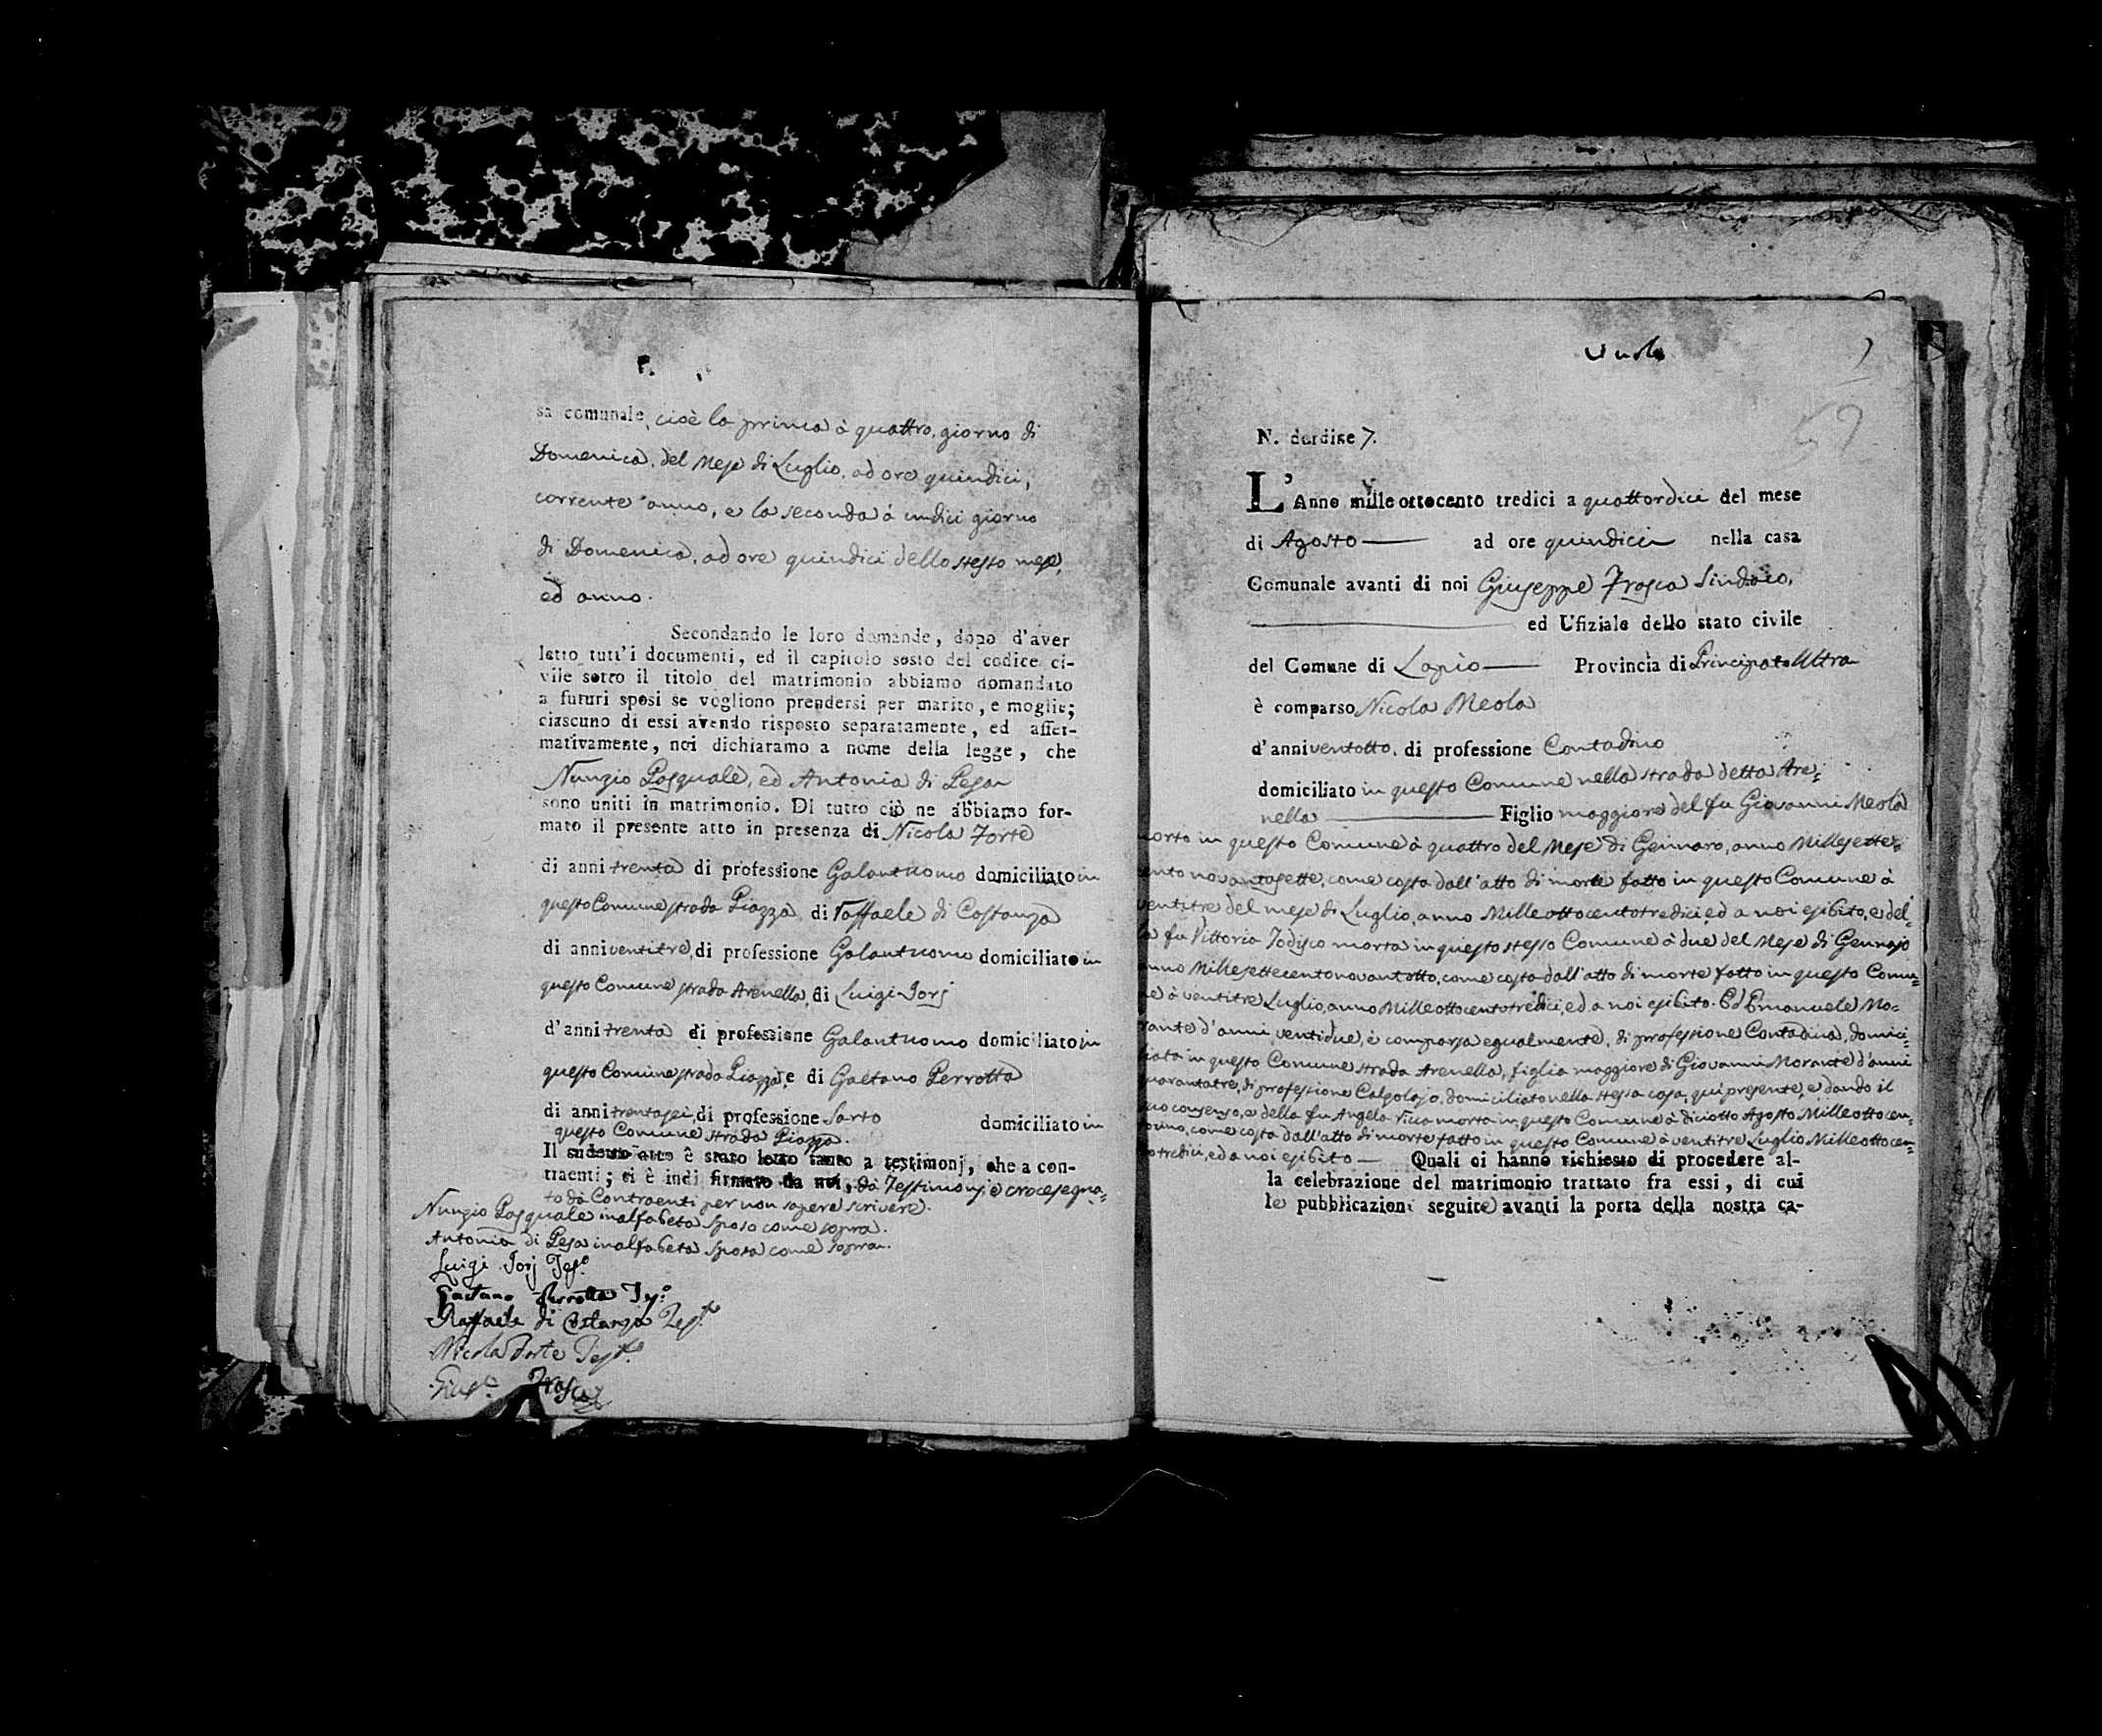 sa comunale, cioè la prima à quattro, giorno di
Domenica, del Mese di Luglio, ad ore quindici,
corrente anno, e la seconda à undici giorno
di Domenica, ad ore quindici dello stesso mese,
ed anno.
Secondando le loro domande, dopo d'aver
letto tutt'i documenti, ed il capitolo sesto del codice ci-
vile sotto il titolo del matrimonio abbiamo domandato
a futuri sposi se vogliono prendersi per marito, e moglie;
ciascuno di essi avendo risposto separatamente, ed affer-
mativamente, noi dichiaramo a nome della legge, che
Nunzio Pasquale, ed Antonia di Pesa
sono uniti in matrimonio. Di tutto ciò ne abbiamo for-
mato il presente atto in presenza di Nicola Forte
di anni trenta di professione Galantuomo domiciliato in
questo Comune strada Piazza, di Raffaele di Costanza
di anni ventitre, di professione Galantuomo domiciliato in
questo Comune strada Arenella, di Luigi Iorj
d'anni trenta di professione Galantuomo domiciliato in
questo Comune strada Piazza, e di Gaetano Perrotta
di anni trentasei, di professione Sarto domiciliato in
questo Comune strada Piazza.
Il sudetto atto è stato letto tanto a testimonj, che a con-
traenti; ei è indi firmato da noi, da Testimonj, e crocesegna=
to da Contraenti per non sapere scrivere.
Nunzio Pasquale inalfabeta sposo come sopra.
Antonia di Pesa inalfabeta sposa come sopra.
Luigi Iorj Tes.o
Gaetano Perrotta Tes.o
Raffaele di Costanza Test.e
Nicola Forte Test.e
Gius.e Frosca
59
N. d'ordine 7.
L'Anno mille ottocento tredici a quattordici del mese
di Agosto ad ore quindici nella casa
Comunale avanti di noi Giuseppe Frosca Sindaco,
ed Ufiziale dello stato civile
del Comune di Lapio Provincia di Principato Ultra
è comparso Nicola Meola
d'anni ventotto, di professione Contadino
domiciliato in questo Comune nella strada detta Are=
nella Figlio maggiore del fu Giovanni Meola
morto in questo Comune à quattro del Mese di Gennaro, anno Millesette=
ento novantasette, come costa dall'atto di morte fatto in questo Comune à
ventitre del mese di Luglio, anno Mille ottocentotredici, ed a noi esibito, e del=
la fu Vittoria Iodisco morta in questo stesso Comune à due del Mese di Gennajo
anno Millesettecentonovantotto, come costa dall'atto di morte fatto in questo Comu=
ne à ventitre Luglio, anno Mille ottocentotredici, ed a noi esibito. Ed Emanuele Mo=
rante d'anni ventidue, è comparsa egualmente, di professione Contadina, domici=
liata in questo Comune strada Arenella, figlia maggiore di Giovanni Morante d'anni
quarantatre, di professione Calzolajo, domiciliato nella stessa casa, qui presente, e dando il
suo consenso, e della fu Angela Ricca morta in questo Comune à diciotto Agosto Mille ottocen=
touno, come costa dall'atto di morte fatto in questo Comune à ventitre Luglio Mille ottocen=
totredici, ed a noi esibito Quali ci hanno richiesto di procedere al-
la celebrazione del matrimonio trattato fra essi, di cui
le pubblicazioni seguite avanti la porta della nostra ca-